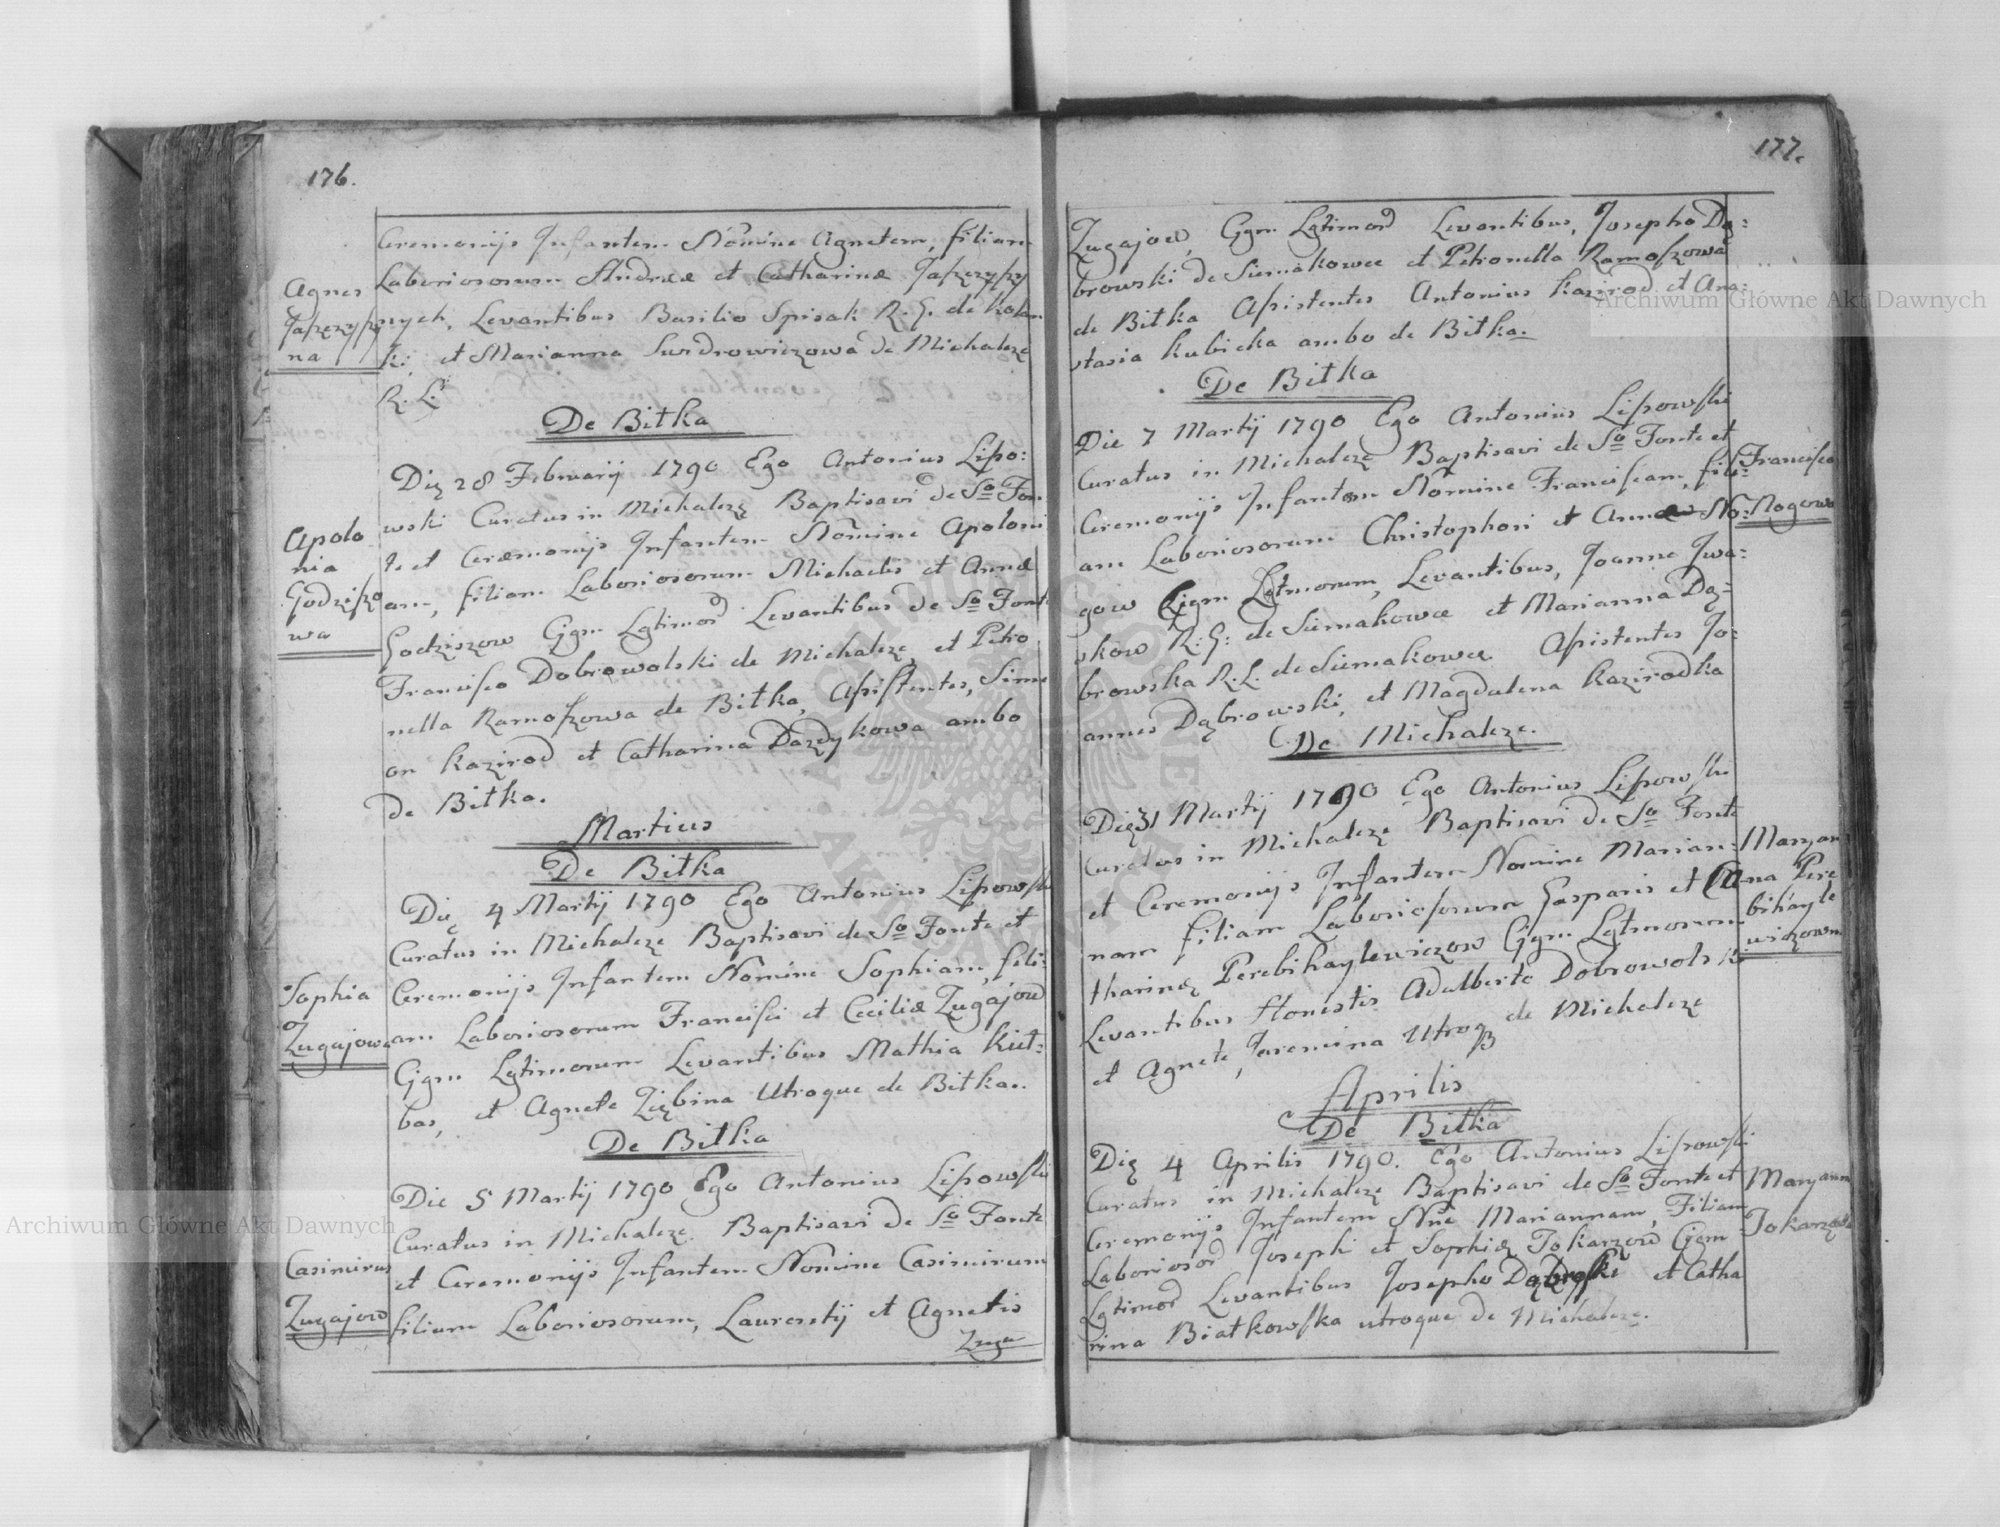 176.
Ceremonijs Infantem Nomine Agnetem, filiam
Laboriosorum Andreæ et Catharinæ
Agnes
nych, Levantibus Basilio Spisak R. G. de
na
ki, et Marianna Swidrowiczowa de Michalczę
R. L.
De Bitka
Dię 28 Februarij 1790 Ego Antonius Lipo:
wski Curatus in Michalczę Baptisavi de So Fon
te et Ceræmonijs Infantem Nomine Apoloni
Apolo
nia
Godziszo
wa
am, filiam Laboriosorum Michaelis et Annæ
Godziszow Cjgm Lgtimor Levantibus de So Fonte
Francisco Dobrowolski de Michalczę, et Petro
nella Ramoszowa de Bitka, Assistentes, Sime
on Kazirod et Catharina Dazdykowa ambo
de Bitka.
Martius
De Bitka
Dię 4 Martij 1790 Ego Antonius Lipowski
Curatus in Michalczę Baptisavi de So Fonte et
Sophia
Zugajowa
Ceremonijs Infantem Nomine Sophiam, fili:
am Laboriosorum Francisci et Ceciliæ Zugajow
Cjgm Lgtimorum Levantibus Mathia Kiet:
bas, et Agnete Ziębina Utroque de Bitka..
De Bitka
Die 5 Martij 1790 Ego Antonius Lipowski
Curatus in Michalczę Baptisavi de So Fonte
Casimirus
Zugajow
et Ceremonijs Infantem Nomine Casimirum
filium Laboriosorum, Laurentij et Agnetis
Zuga
177.
Zugajow, Cjgm Lgtimor Levantibus, Josepho Dą:
browski de Siemakowce et Petronella Ramoszowa
de Bitka Assistentes Antonius Kazirod et Ana:
stasia Kubicka ambo de Bitka.
De Bitka
Die 7 Martij 1790 Ego Antonius Lipowski
Curatus in Michalczę Baptisavi de So Fonte et
Francisca
Nogowa
Ceremonijs Infantem Nomine Franciscam, fili:
am Laboriosorum Christophori et Annæ No:
gow Cjgm Lgtmorum, Levantibus, Joanne Iwa:
skow R. G: de Siemakowce et Marianna Dą:
browska R. L. de Siemakowce Assistentes Jo:
annes Dąbrowski, et Magdalena Kazirodka
De Michalcze.
Dię 31 Martij 1790 Ego Antonius Lipowski
Curatus in Michalczę Baptisavi de So Fonte
Maryan
na Pere
bihayle
wiczowna
et Ceremonijs Infantem Nomine Marian:
nam filiam Laboriosorum Gasparis et Ca
tharinæ Perebihaylewiczow Cjgm Lgtmorum
Levantibus Honestis Adalberto Dobrowolski
et Agnete, Jaremina Utroq de Michalczę
Aprilis
De Bitka
Dię 4 Aprilis 1790. Ego Antonius Lipowski
Curatus in Michalczę Baptisavi de So Fonte et
Maryanna
Ceremonijs Infantem Nne Mariannam, Filiam
Laboriosor Josephi et Sophiæ Tokarzow Cjgm
Lgtimor Levantibus Josepho Dąbroski et Catha
rina Białkowska utroque de Michalczę.
Archiwum Główne Akt Dawnych
Archiwum Główne Akt Dawnych